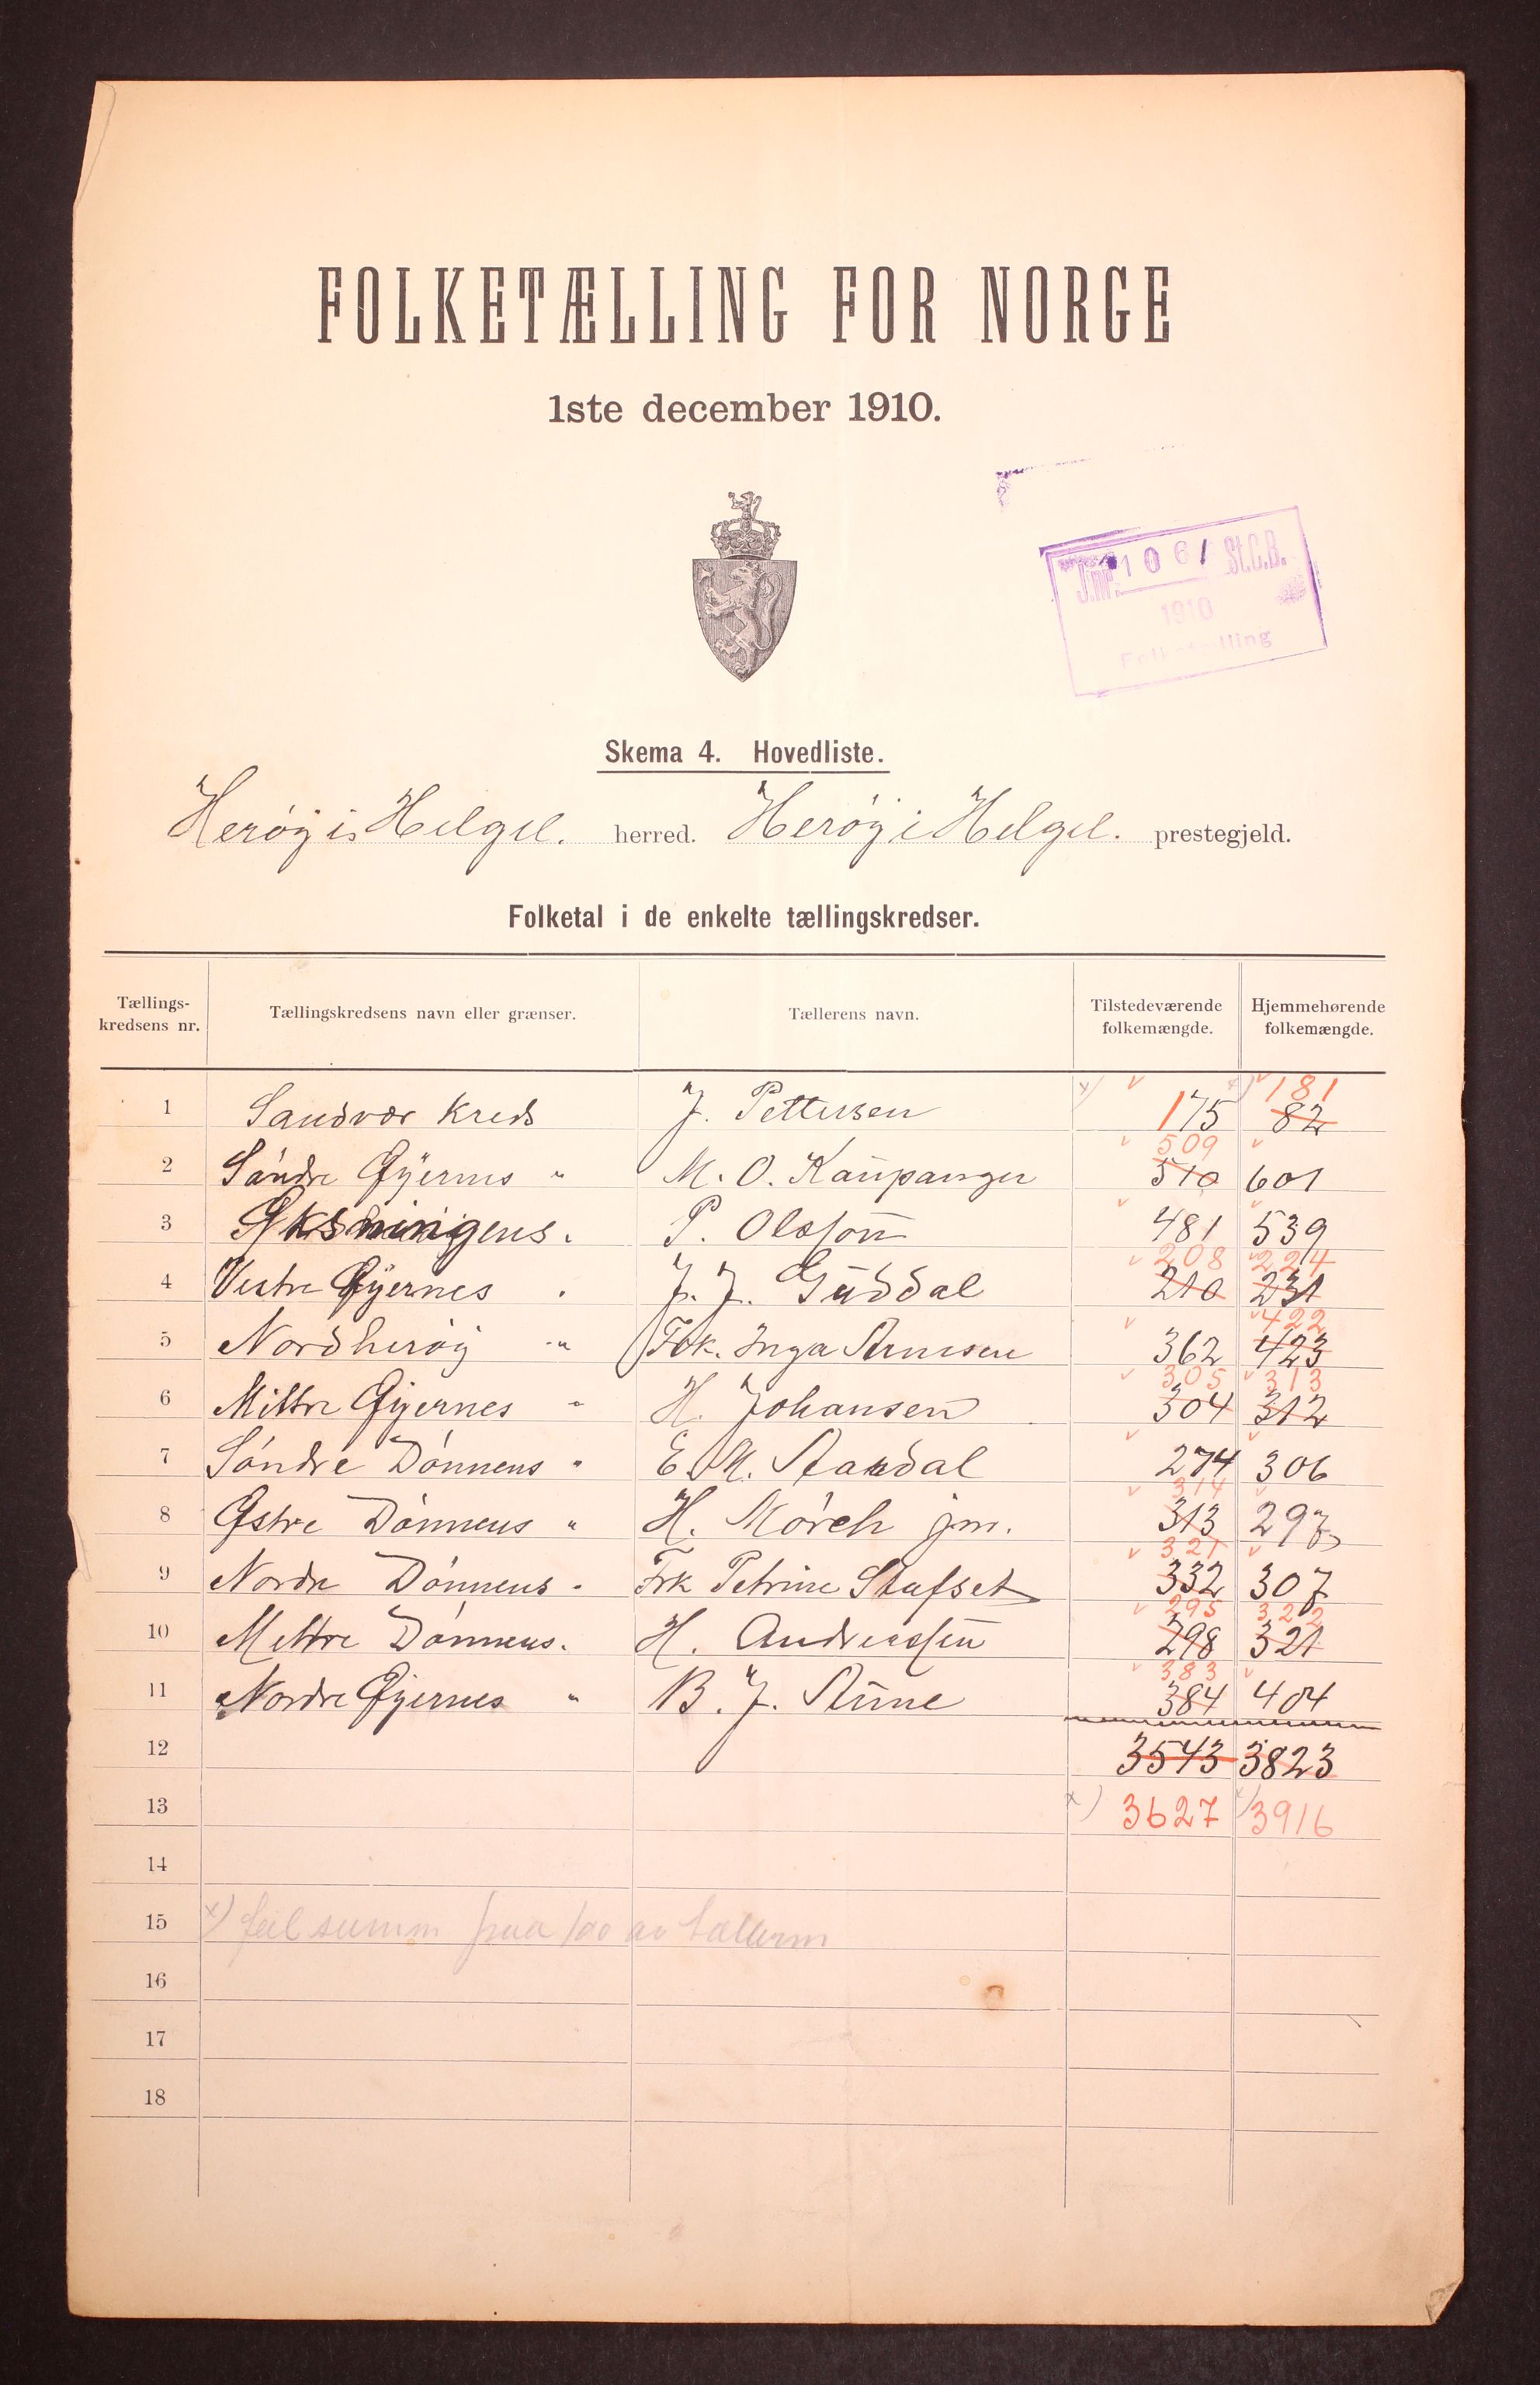 FOLKETÆLLING FOR NORGE
1ste december 1910.
J.nr. 1061 St.C.B.
1910
Folketælling
Skema 4. Hovedliste.
Herøy i Helgel. herred. Herøy i Helgel. prestegjeld.
Folketal i de enkelte tællingskredser.
Tællings-kredsens nr. Tællingskredsens navn eller grænser. Tællerens navn. Tilstedeværende folkemængde. Hjemmehørende folkemængde.
1 Sandvær Kreds J. Pettersen x) 175 x) 181 82
2 Söndre Øyernes " M. O. Kaupanger 509 510 601
3 Øksningens " P. Olsson 481 539
4 Vestre Øyernes " J. J. Guddal 208 210 224 231
5 Nordherøy " Frk. Inga Arnesen 362 422 423
6 Mittre Øyernes " H. Johansen 305 304 313 312
7 Söndre Dönnens " E. M. 274 306
8 Østre Dönnens " H. Mörch jnr. 314 313 297
9 Nordre Dönnens " Frk Petrine Stafset 321 332 307
10 Mittre Dönnens " H. Andreassen 295 298 322 321
11 Nordre Øyernes " B. J. Aune 383 384 404
12 3543 3823
13 x) 3627 x) 3916
14
15 x) feil summ paa 100 av tælleren
16
17
18